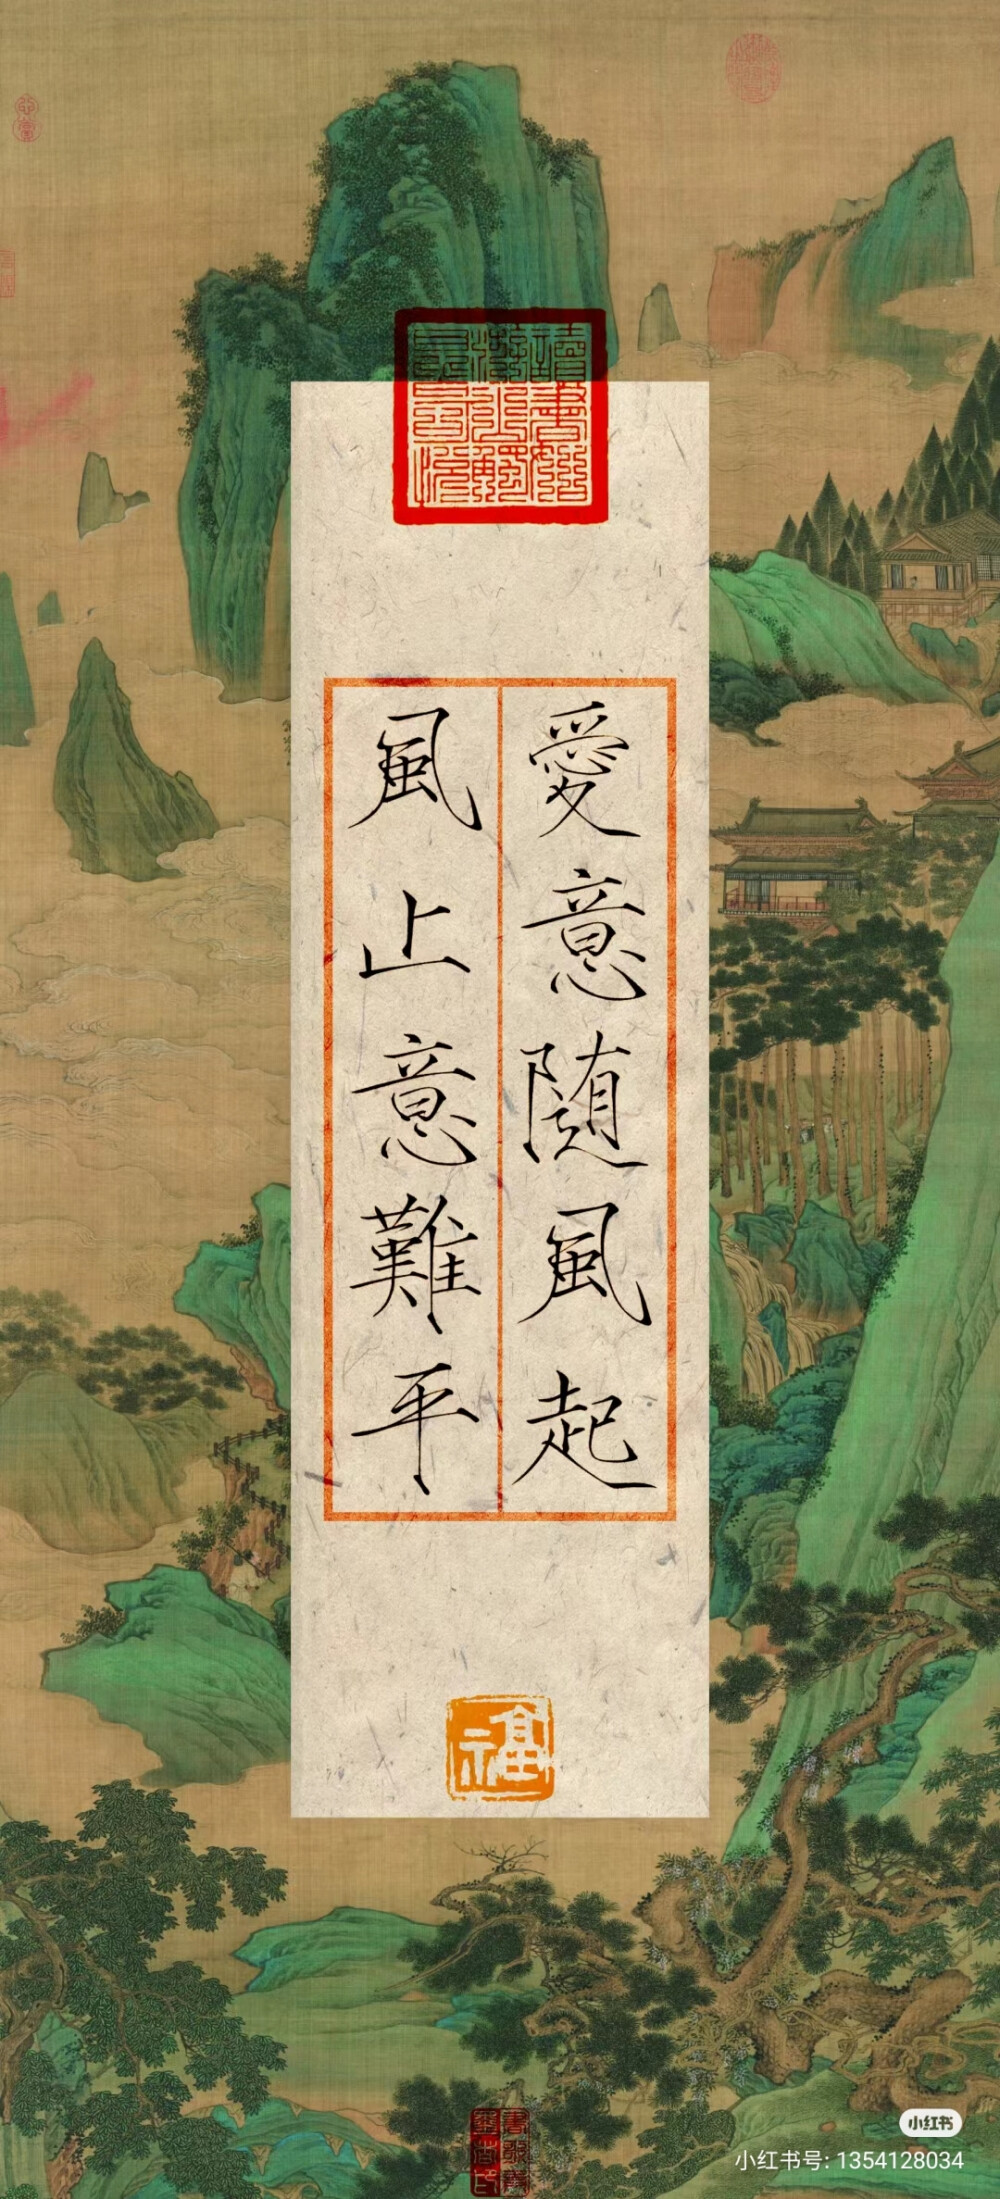 愛意隨風起
風止意難平
福
小红书
小红书号: 1354128034